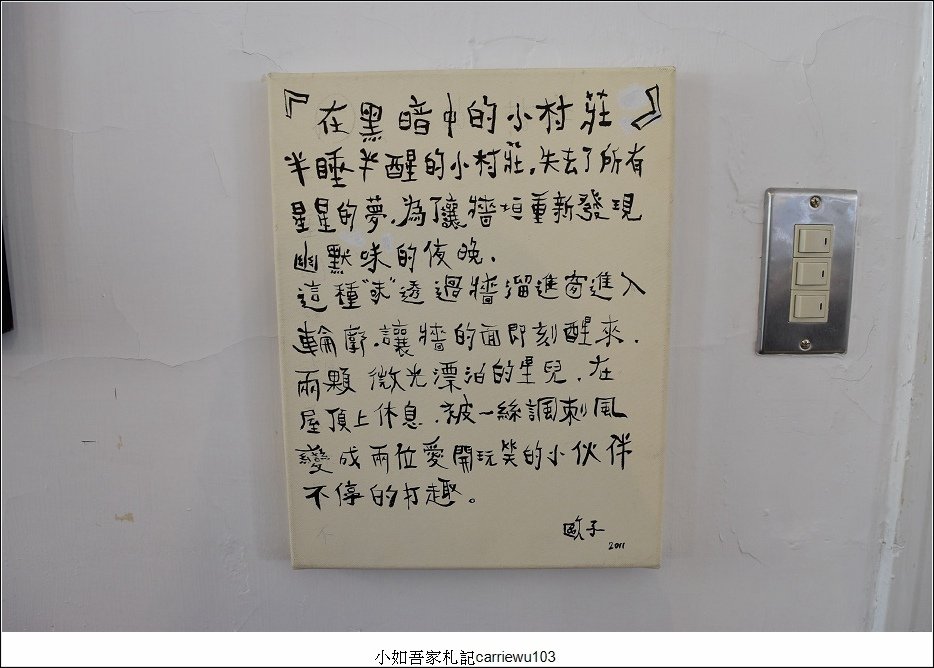 『在黑暗中的小村莊』
半睡半醒的小村莊,失去了所有
星星的夢,為了讓牆垣重新發現
幽默味的夜晚.
這種"求"透過牆溜進窗進入
輪廓.讓牆的面即刻醒來.
兩顆微光漂泊的星兒.在
屋頂上休息.被一絲諷刺風
變成兩位愛開玩笑的小伙伴
不停的打趣。
歐子
2011
小如吾家札記carriewu103